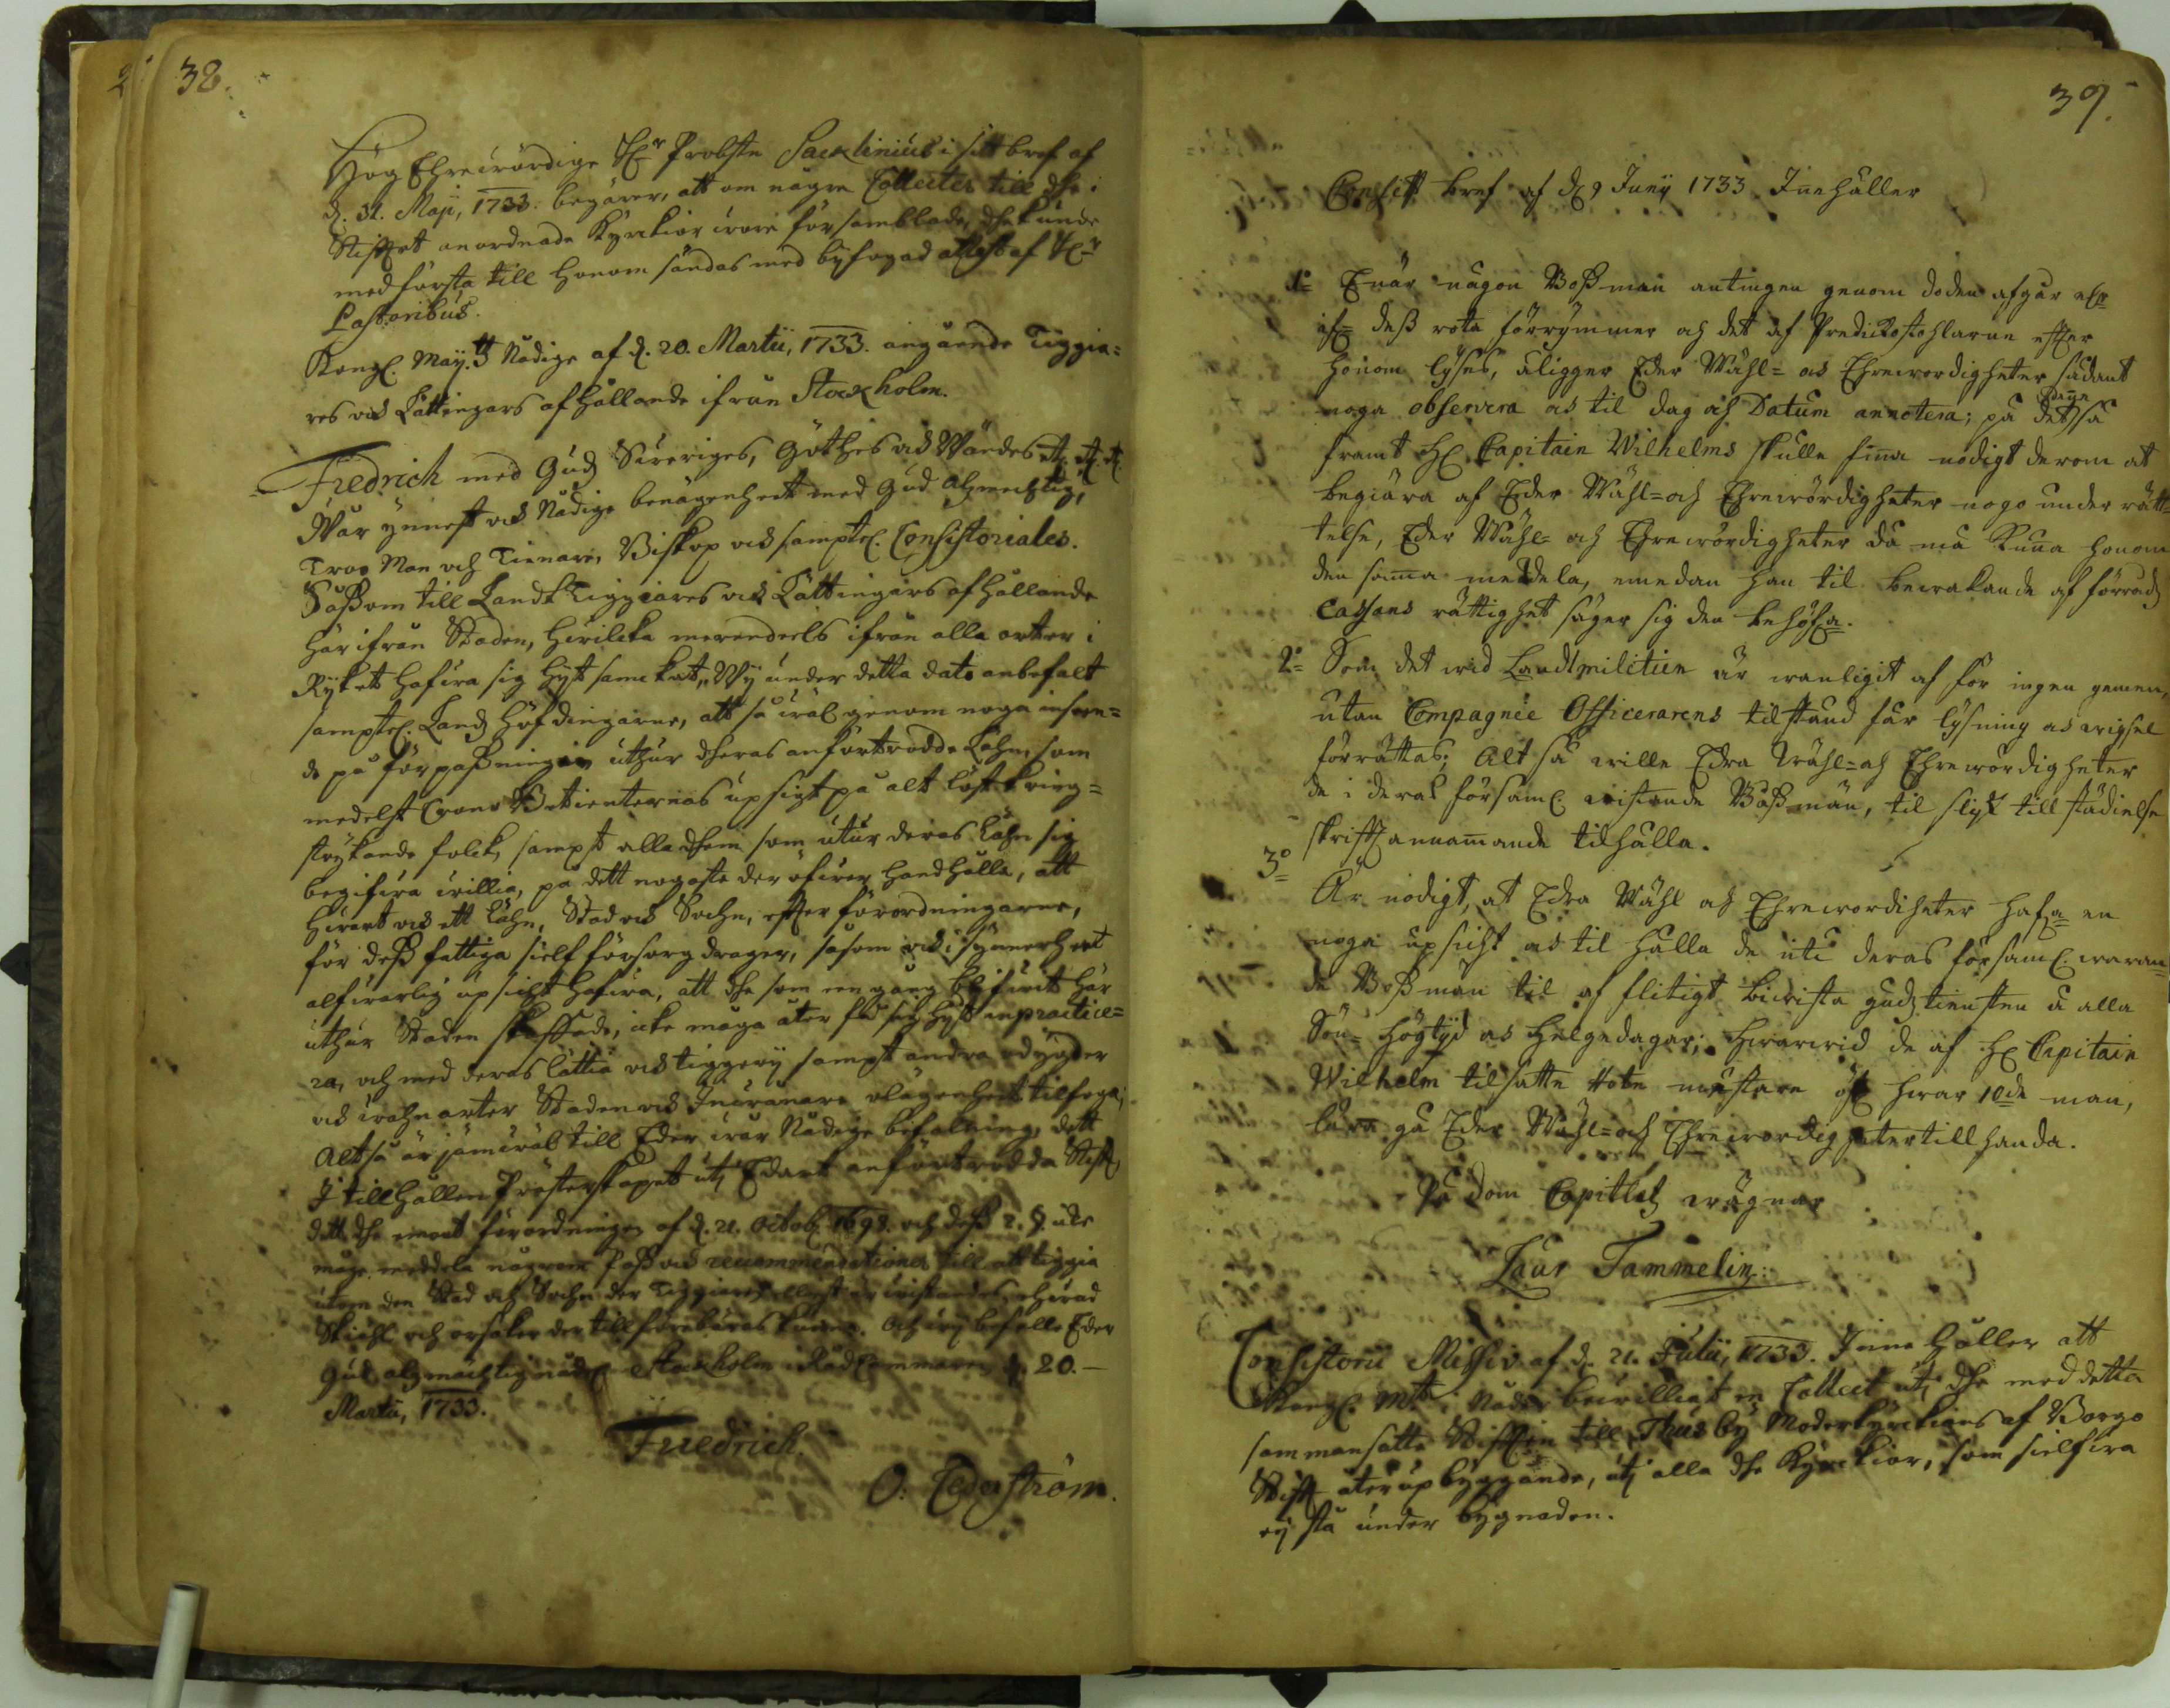 38.
Hög Ehrewördige Hr Probsten Sacklinius i sitt bref af
d. 31. Maji, 1733. begärer, att om någre Collecter till dhe i
Stiftet anordnade Kyrckior wore församblade, dhe kunde
med första till honom sändas med byfogad attest af Hr
Pastoribus.
Kongl. Maij:tz Nådige af d. 20. Martii, 1733. angående Tiggia-
res och Lättingars afhållande ifrån Stockholm.
Fredrich med Gudz Sweriges, Göthes och Wändes etc. etc. etc.
Wår ynnest och Nådige benägenhet med Gud Alzmechtig,
Troo Man och Tienare, Biskop och samptel. Consistoriales.
Såssom till Landt Tiggiares och Lättingars afhållande
här ifrån Staden, hwilcka merendeels ifrån alla orter i
Rijket hafwa sig hijt samckat, Wij under detta dato anbefalt
samptel. Landz Höfdingarne, att så wäl genom noga inseen-
de på förpassningen uthur dheras anförtrodde Lähn, som
medelst Crono Betienternas upsigt på alt löst kring-
strykande folck, sampt alla dhem som utur deras Lähn sig
begifwa willia, på dett nogaste der öfwer handhålla, att
hwart och ett Lähn, Stad och Sochn, effter förordningarne,
för dess fattiga sielf försorg drager, såsom och i synnerhet
alfwarlig upsicht hafwa, att dhe som en gång blifwit här
uthur Staden skaffade, icke måga åter få sig hijt inpractice-
ra, och med deras lättia och tiggery sampt andra odygder
och wahnarter Staden och Inwånare olägenhet tilfoga;
Altså är jämwäl till Eder wår Nådige befallning, dett
I tillhållen Prästerskapet uti Edart anförtrodda Stift
dett dhe emot förordningen af d. 21. Octob. 1698. och dess 2. §. icke
måge meddela någrom Pass och recommendationer till att tiggia
utom den Stad och Sochn der Tiggiaren ellest är wistandes, ehwad
Skiähl och orsaker der till förebäras kunna. Och wij befalle Eder
Gud alzmächtig nådel. Stockholm i Råd Cammaren d. 20.
Martii, 1733.
Friedrich.
O: Cederström.
39.
Consist: bref af d 9 Junij 1733 Innehåller
1o Enär någon Bossman antingen genom döden afgår eller
ifr. dess rota förrymmer och det af Predickostohlarne effter
honom lyses, åligger Eder Wähl- och Ehrewördigheter sådant
noga observera och til dag och Datum annotera; på det så
framt H Capitain Wilhelms skulle finna nödigt derom at
begiära af Eder Wähl- och Ehrewördigheter nogo underrät-
telse, Eder Wähl- och Ehrewördigheter då må kunna honom
den samma meddela, emedan han til bewakande af förråds
Cassans rättighet säger sig den behöfwa.
2o Som det wid Landtmilitien är wanligit at för ingen gemen,
utan Compagnie Officerarens tilstånd får lysning och wigsel
förrättas; Altså wille Edra Wähl- och Ehrewördigheter
de i deras församl. wistande Bossmän, til slijk till städielse
skrifft annammande tilhålla.
3o
Är nödigt, at Edra Wähl och Ehrewördiheter hafwa en
noga upsicht och til hålla de uti deras församl. waran-
de Bossmän til at flitigt biwista gudztiensten å alla
Sön- Högtijd och Helgedagar; hwarwid de af H Capitain
Wilhelm tilsatte Rote mästare öfr hwar 10de man,
lära gå Eder Wähl- och Ehrewördigheter till handa.
På dom Capitlets wägnar
Laur Tammelin:
Consistorii Missiv af d. 21. Julii, 1733. Inne håller att
Kongl. Mtt i Nåder bewilliat en Collect uti dhe med detta
sammansatte Stifften till Thusby Moderkyrckians af Borgo
Stifft återupbyggande, uti alla dhe Kyrckior, som sielfwa
ej stå under bygnaden.